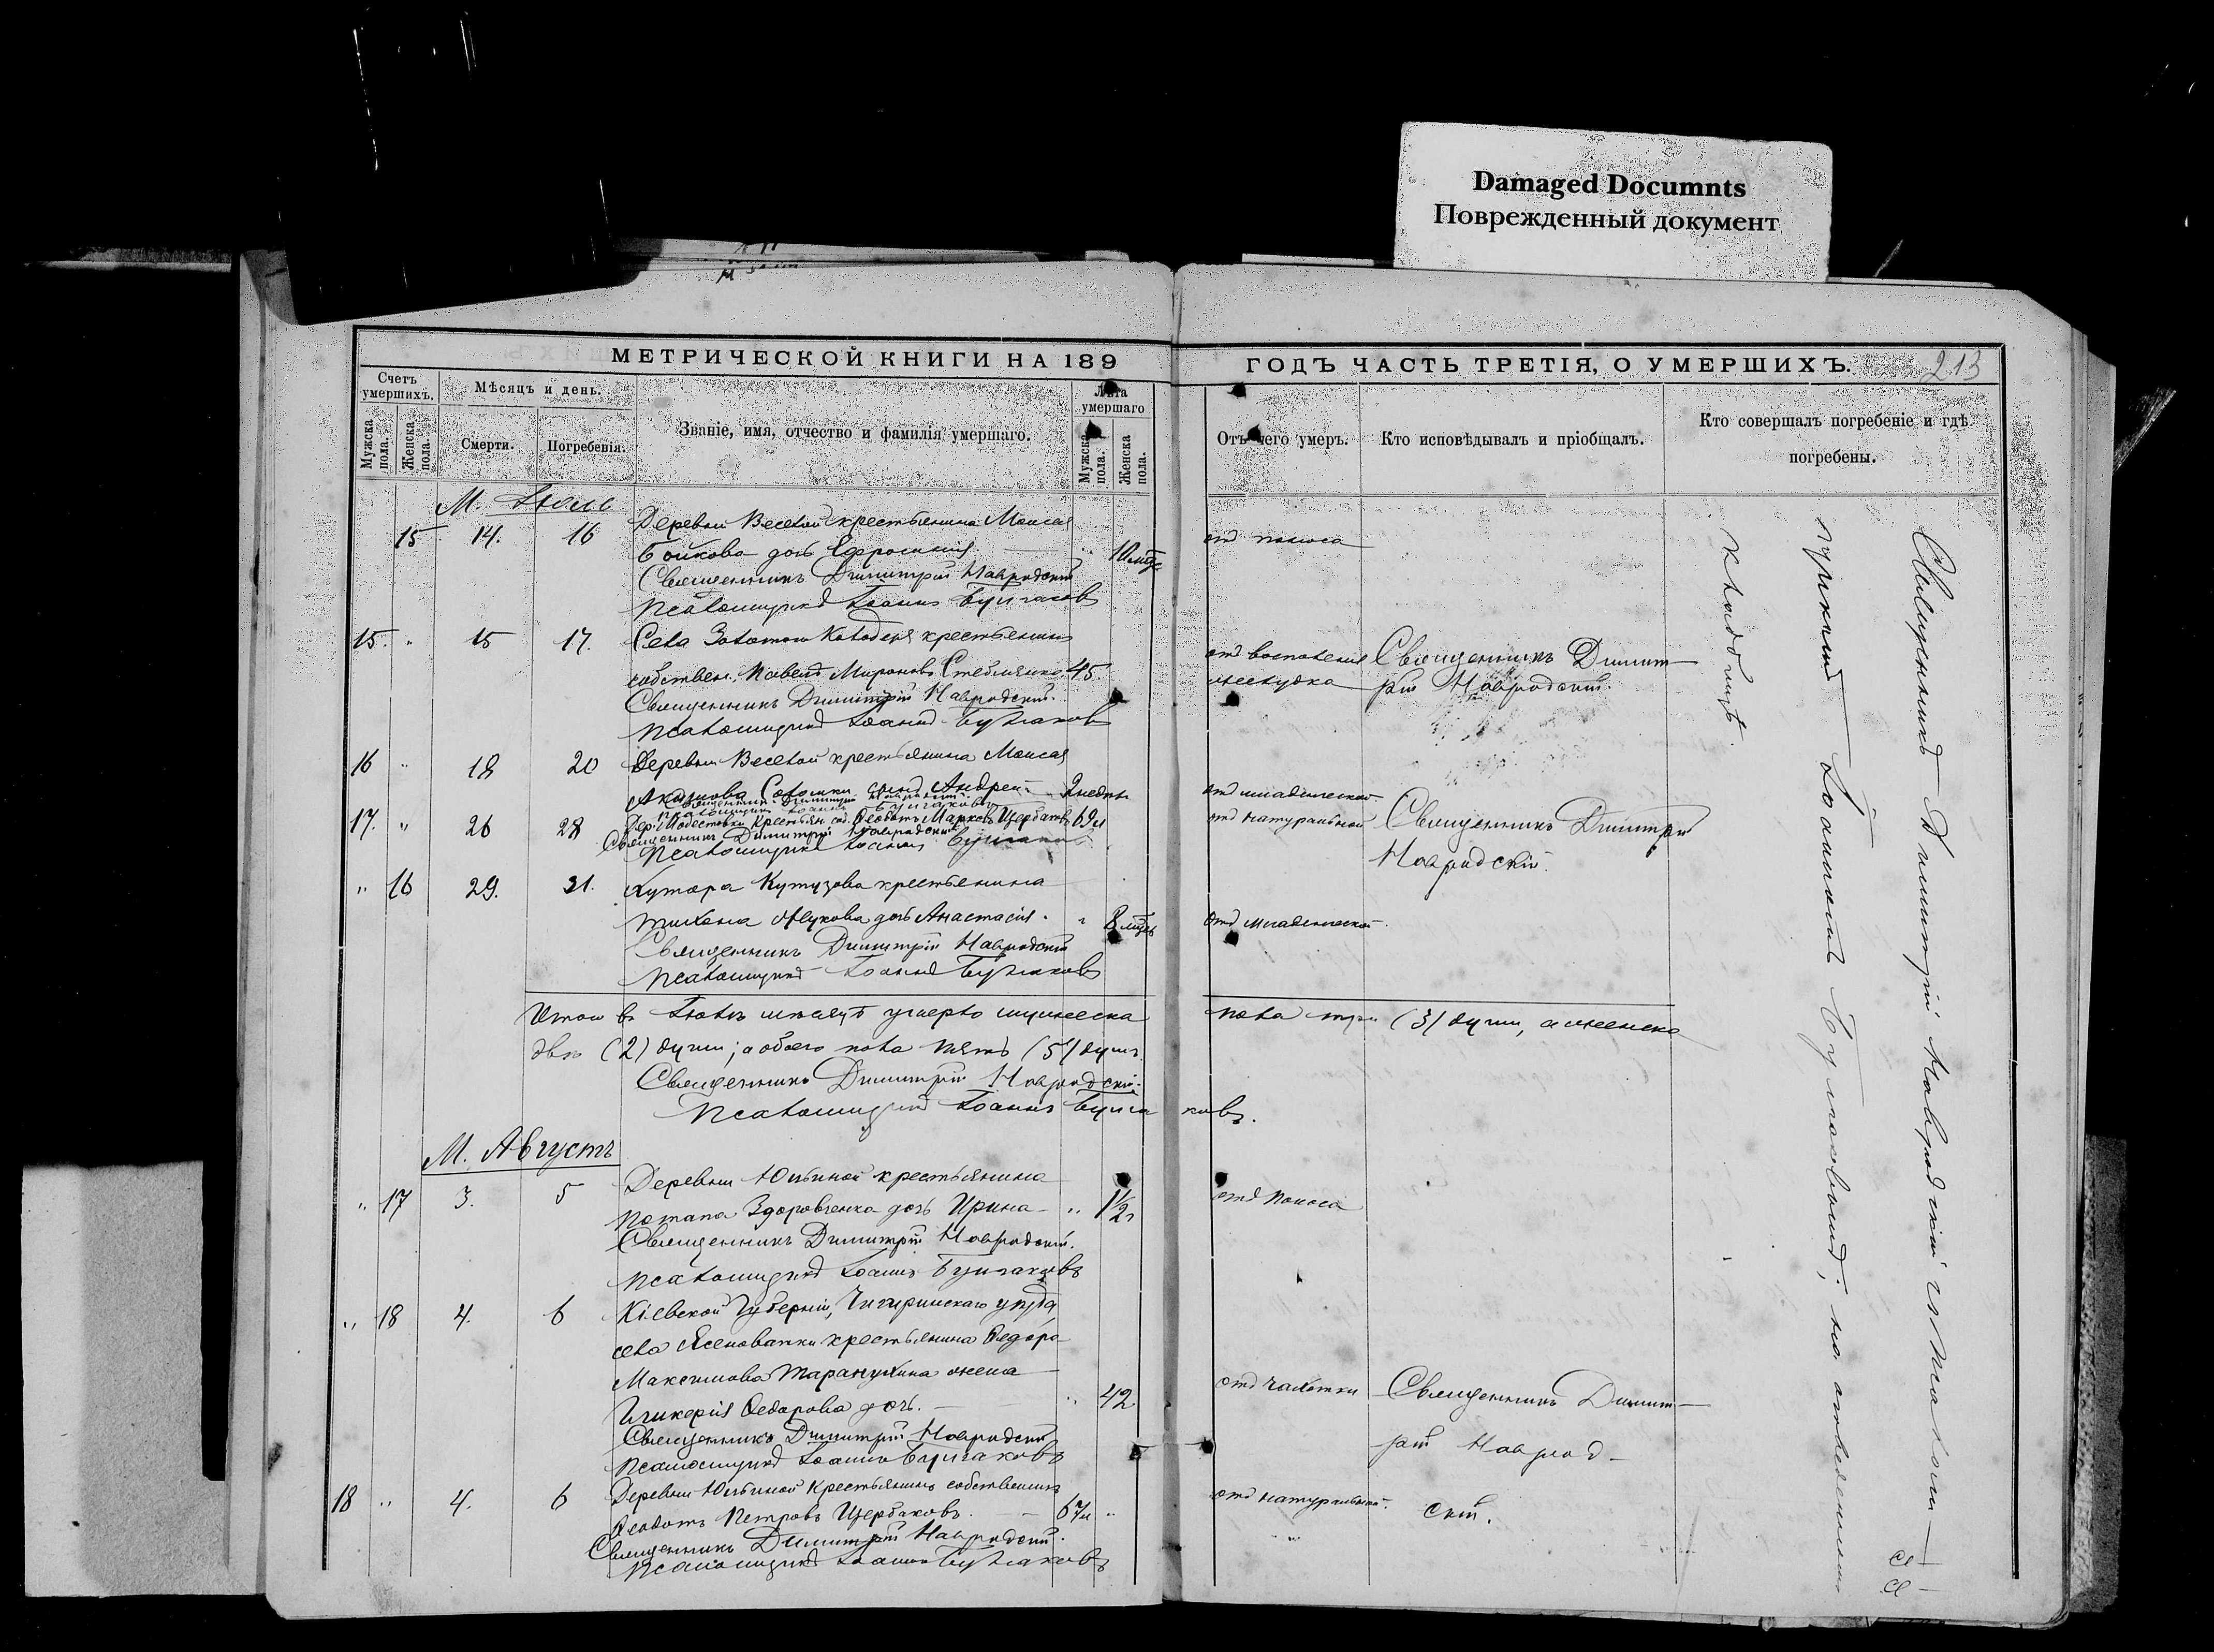 Damaged Documnts
Поврежденный документ
МЕТРИЧЕСКОЙ КНИГИ НА 189
ГОДЪ ЧАСТЬ ТРЕТІЯ, О УМЕРШИХЪ.
213
Счетъ умершихъ.
Мужска пола.
Женска пола.
Мѣсяцъ и день.
Смерти.
Погребенія.
Званіе, имя, отчество и фамилія умершаго.
Лѣта умершаго
Мужска пола.
Женска пола.
Отъ чего умеръ.
Кто исповѣдывалъ и пріобщалъ.
Кто совершалъ погребеніе и гдѣ погребены.
М. Іюль
15 14. 16 Деревни Веселой крестьянина Моисея
Бойкова дочь Ефросинія " 10 мѣс. отъ поноса
Священникъ Димитрій Навродскій
Псаломщикъ Іоаннъ Булгаковъ
15. " 15 17. Села Золотой Колодезя крестьянинъ
собствен. Павелъ Мироновъ Стеблянко 45. отъ воспаленія желудка Священникъ Димитрій Навродскій.
Священникъ Димитрій Навродскій.
Псаломщикъ Іоаннъ Булгаковъ
16 " 18 20 Деревни Веселой крестьянина Моисея
сынъ Андрей 2 недѣли отъ младенческой.
Священникъ Димитрій Навродскій
Псаломщикъ Іоаннъ Булгаковъ
17. " 26 28 Дер. Модестовки Крестьян. соб. Ѳеодотъ Марковъ Щербаковъ 69 л отъ натуральной Священникъ Димитрій Навродскій.
Священникъ Димитрій Навродскій
Псаломщикъ Іоаннъ Булгаковъ
" 16 29. 31. Хутора Кутузова крестьянина
Тихона дочь Анастасія. " 8 мѣс. Отъ младенческой.
Священникъ Димитрій Навродскій
Псаломщикъ Іоаннъ Булгаковъ
Итого въ Іюлѣ мѣсяцѣ умерло мужеска пола три (3) души, а женска
двѣ (2) души; а обоего пола пять (5) душъ.
Священникъ Димитрій Навродскій.
Псаломщикъ Іоаннъ Булгаковъ.
М. Августъ
" 17 3. 5 Деревни Юльиной крестьянина
Потапа Здоровченка дочь Ирина " 1½ г отъ поноса
Священникъ Димитрій Навродскій.
Псаломщикъ Іоаннъ Булгаковъ
" 18 4. 6 Кіевской Губерніи, Чигиринскаго уѣзда,
села Ясеноватки крестьянина Ѳедора
Максимова Таранухина жена
Гликерія Ѳедорова дочь. " 42 отъ чахотки Священникъ Димитрій Навродскій.
Священникъ Димитрій Навродскій
Псаломщикъ Іоаннъ Булгаковъ
18 " 4. 6 Деревни Юльиной Крестьянинъ собственникъ
Ѳеодотъ Петровъ Щербаковъ. 67 л " отъ натуральной.
Священникъ Димитрій Навродскій.
Псаломщикъ Іоаннъ Булгаковъ
Священникъ Димитрій Навродскій и псаломщикъ Іоаннъ Булгаковъ; на
кладбищѣ.